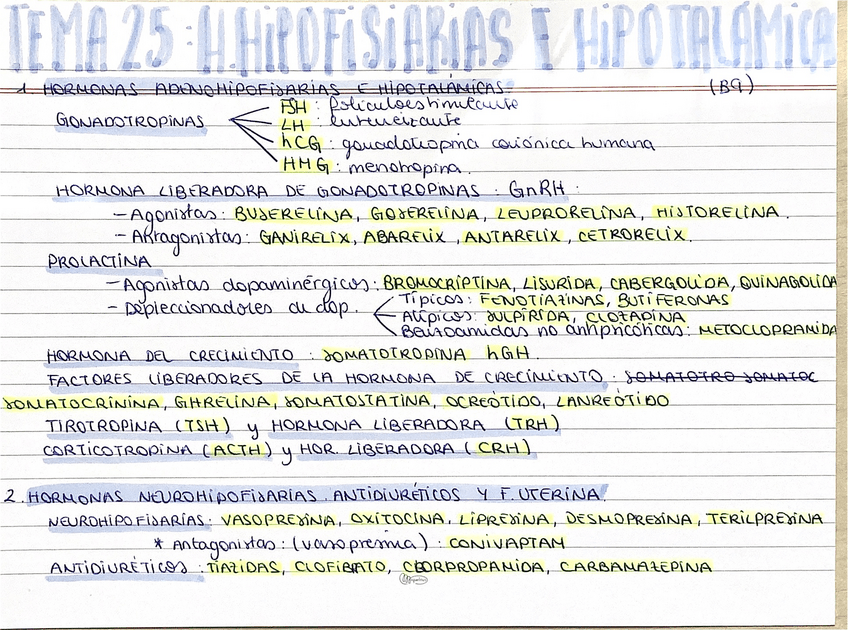 TEMA 25: H.HIPOFISIARIAS E HIPOTALÁMICAS
1. HORMONAS ADENOHIPOFISARIAS E HIPOTALÁMICAS. (B9)
GONADOTROPINAS
FSH: foliculoestimulante
LH: luteneizante
hCG: gonadotropina coriónica humana
HMG: menotropina.
HORMONA LIBERADORA DE GONADOTROPINAS: GnRH:
- Agonistas: BUSERELINA, GOSERELINA, LEUPRORELINA, HISTORELINA.
- Antagonistas: GANIRELIX, ABARELIX, ANTARELIX, CETRORELIX.
PROLACTINA
- Agonistas dopaminérgicos: BROMOCRIPTINA, LISURIDA, CABERGOLIDA, QUINAGOLIDA
- Depleccionadores de dop.
Típicos: FENOTIAZINAS, BUTIFERONAS
Atípicos: SULPIRIDA, CLOZADINA
Benzoamidas no antipsicóticas: METOCLOPRAMIDA
HORMONA DEL CRECIMIENTO: SOMATOTROPINA hGH.
FACTORES LIBERADORES DE LA HORMONA DE CRECIMIENTO: SOMATOTRO SOMATOC
SOMATOCRININA, GHRELINA, SOMATOSTATINA, OCREÓTIDO, LANREÓTIDO
TIROTROPINA (TSH) y HORMONA LIBERADORA (TRH)
CORTICOTROPINA (ACTH) y HOR. LIBERADORA (CRH)
2. HORMONAS NEUROHIPOFISARIAS. ANTIDIURÉTICOS Y F. UTERINA.
NEUROHIPOFISARIAS: VASOPRESINA, OXITOCINA, LIPRESINA, DESMOPRESINA, TERILPRESINA
* Antagonistas: (vasopresina): CONIVAPTAM
ANTIDIURÉTICOS: TIAZIDAS, CLOFIBRATO, CLORPROPAMIDA, CARBAMAZEPINA